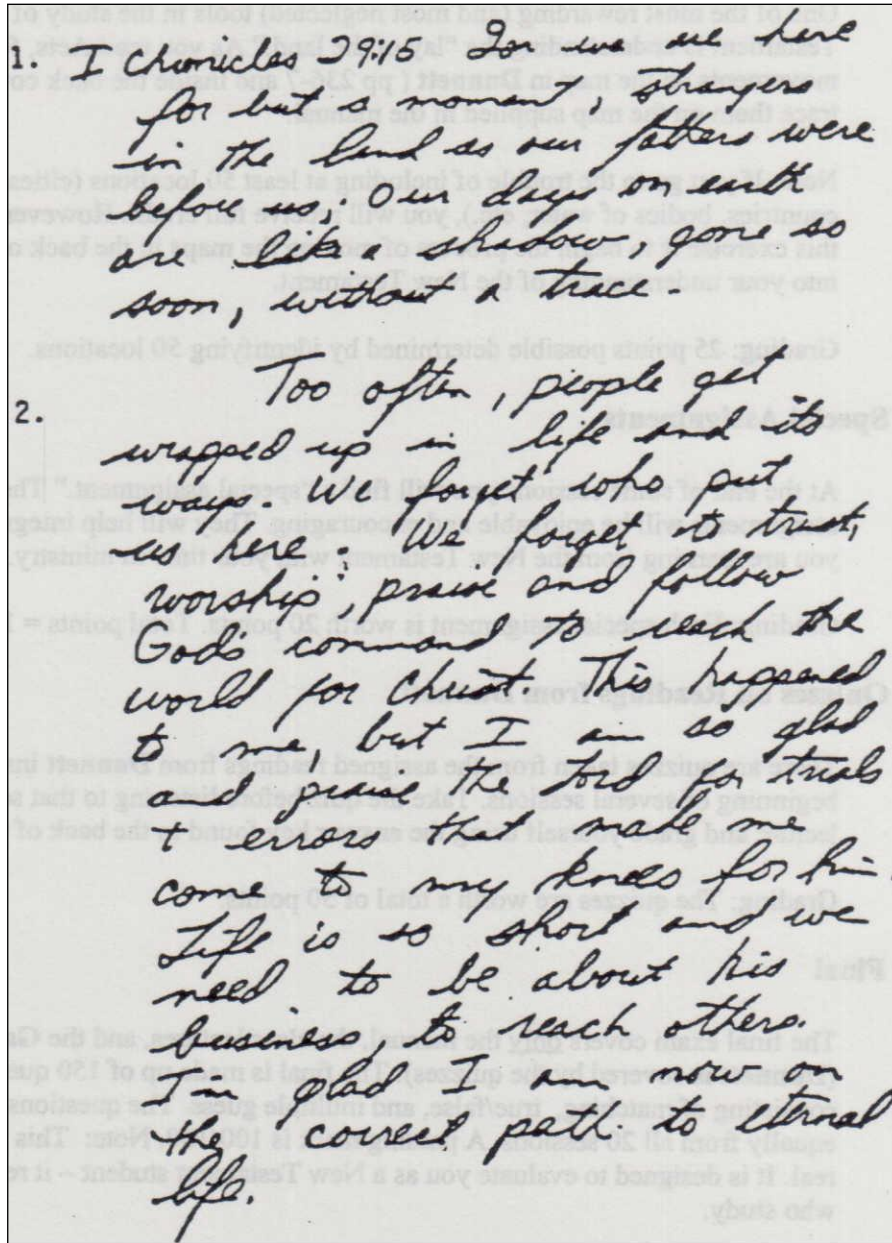 1. I Chronicles 29:15 For we are here
for but a moment, strangers
in the land as our fathers were
before us: Our days on earth
are like a shadow, gone so
soon, without a trace.
2. Too often, people get
wrapped up in life and its
ways. We forget who put
us here. We forget to trust,
worship, praise and follow
God's command to reach the
world for Christ. This happened
to me, but I am so glad
and praise the Lord for trials
+ errors that made me
come to my knees for him.
Life is so short and we
need to be about his
business, to reach others.
I'm glad I am now on
the correct path to eternal
life.